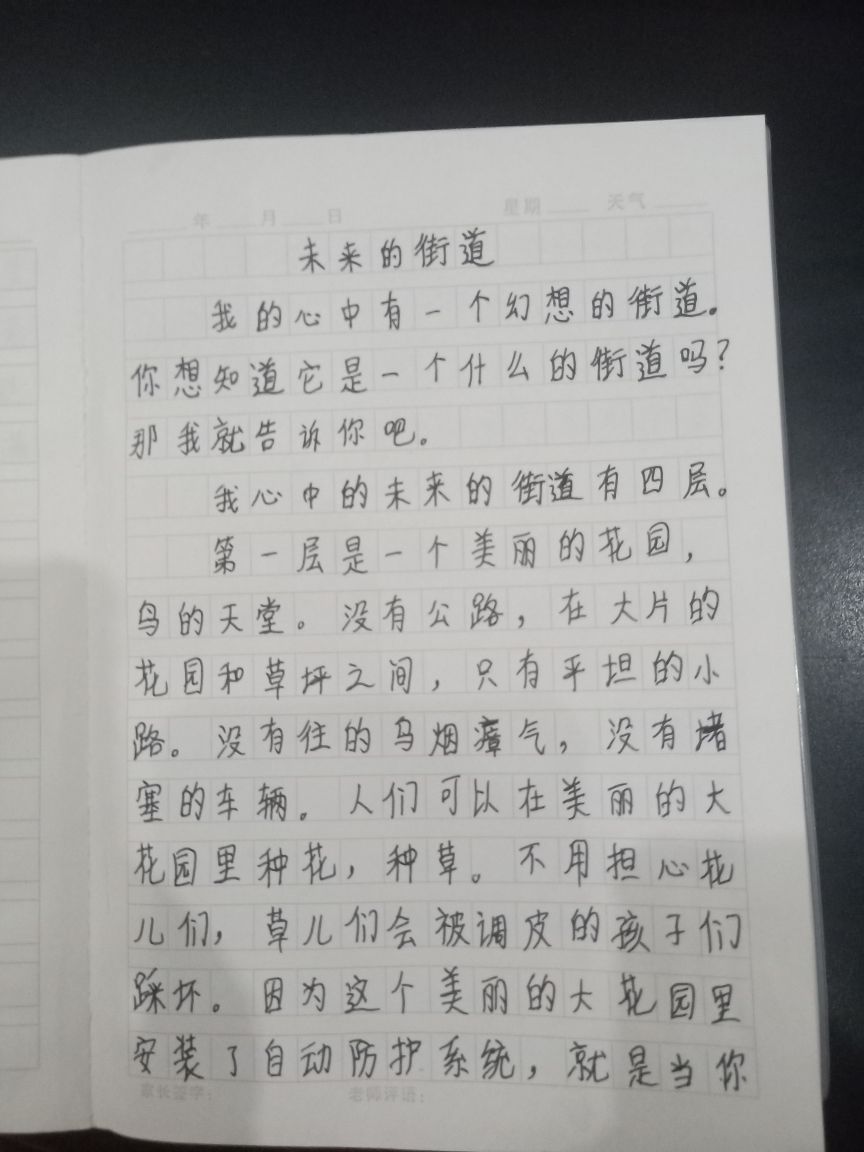 年 月 日 星期 天气
未来的街道
我的心中有一个幻想的街道。
你想知道它是一个什么的街道吗？
那我就告诉你吧。
我心中的未来的街道有四层。
第一层是一个美丽的花园，
鸟的天堂。没有公路，在大片的
花园和草坪之间，只有平坦的小
路。没有往的乌烟瘴气，没有堵
塞的车辆。人们可以在美丽的大
花园里种花，种草。不用担心花
儿们，草儿们会被调皮的孩子们
踩坏。因为这个美丽的大花园里
安装了自动防护系统，就是当你
家长签字： 老师评语：